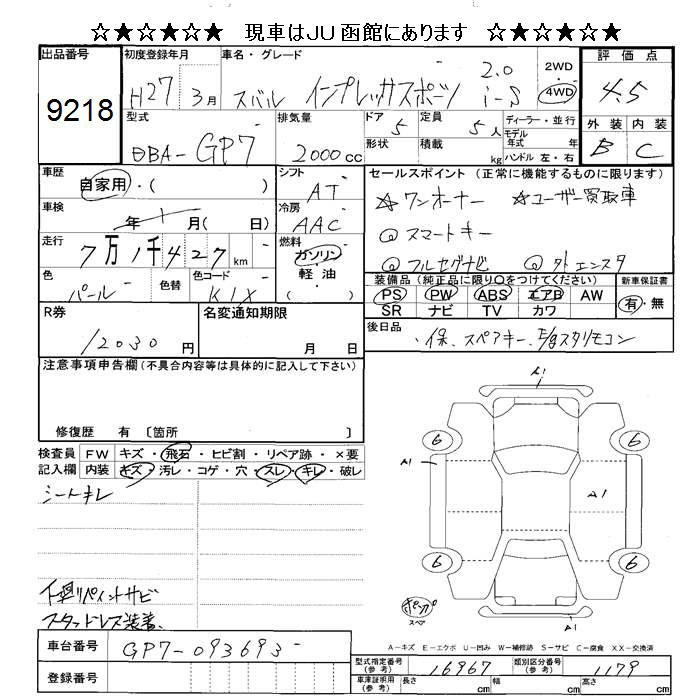 ☆★☆★☆★ 現車はJU函館にあります ☆★☆★☆★
出品番号 初度登録年月 車名・グレード 2WD 評価点
9218 H27 3月 スバル インプレッサスポーツ 2.0 i-S 4WD 4.5
型式 排気量 ドア 定員 ディーラー・並行 外装 内装
DBA-GP7 2000cc 5 5人 モデル年式 年 B C
形状 積載 kg ハンドル 左・右
車歴 シフト セールスポイント(正常に機能するものに限ります)
自家用・( ) AT ☆ワンオーナー ☆ユーザー買取車
車検 年 月( 日) 冷房 AAC ◎スマートキー
走行 7万1千427km 燃料 ガソリン・軽油・( ) ◎フルセグナビ
色 パール 色替 色コード K1X
装備品(純正品に限り○をつけてください) 新車保証書
PS PW ABS エアB AW 有・無
SR ナビ TV カワ
R券 12030円 名変通知期限 月 日
後日品 ・保、スペアキー、E/gスタリモコン
注意事項申告欄(不具合内容等は具体的に記入して下さい)
修復歴 有 〔箇所 〕
検査員 FW キズ・飛石・ヒビ割・リペア跡・×要
記入欄 内装 キズ・汚レ・コゲ・穴・スレ・キレ・破レ
シートキレ
A1
6 6
A1 A1
6 6
スペア
A1
下廻リペイントサビ
スタッドレス装着、
A-キズ E-エクボ U-凹み W-補修跡 S-サビ C-腐食 XX-交換済
車台番号 GP7-093693
型式指定番号(参考) 16967 類別区分番号(参考) 1179
登録番号 車庫証明用(参考) 長さ cm 幅 cm 高さ cm